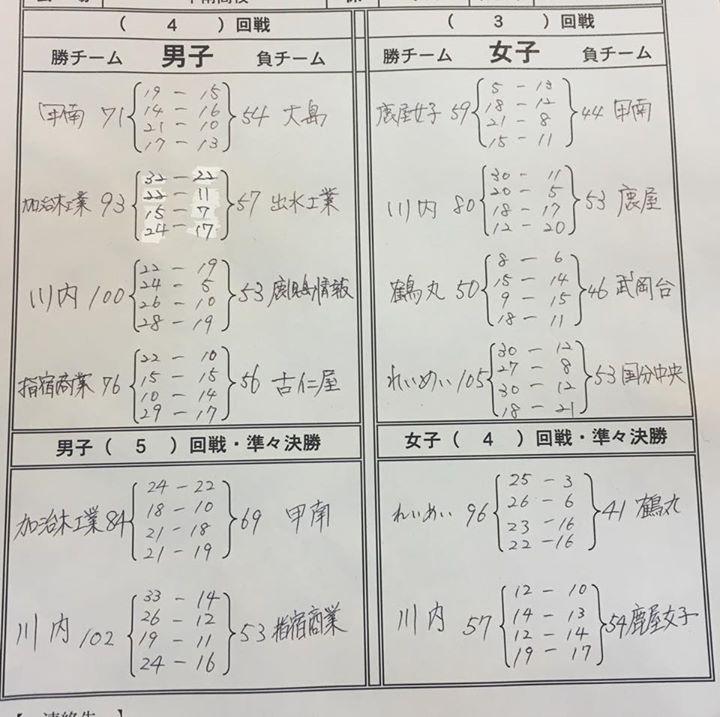 ( 4 ) 回戦
勝チーム 男子 負チーム
甲南 71 54 大島
19 - 15
14 - 16
21 - 10
17 - 13
加治木工業 93 57 出水工業
32 - 22
22 - 11
15 - 7
24 - 17
川内 100 53 鹿児島情報
22 - 19
24 - 5
26 - 10
28 - 19
指宿商業 76 56 古仁屋
22 - 10
15 - 15
10 - 14
29 - 17
男子 ( 5 ) 回戦・準々決勝
加治木工業 84 69 甲南
24 - 22
18 - 10
21 - 18
21 - 19
川内 102 53 指宿商業
33 - 14
26 - 12
19 - 11
24 - 16
( 3 ) 回戦
勝チーム 女子 負チーム
鹿屋女子 59 44 甲南
5 - 13
18 - 12
21 - 8
15 - 11
川内 80 53 鹿屋
30 - 11
20 - 5
18 - 17
12 - 20
鶴丸 50 46 武岡台
8 - 6
15 - 14
9 - 15
18 - 11
れいめい 105 53 国分中央
30 - 12
27 - 8
30 - 12
18 - 21
女子 ( 4 ) 回戦・準々決勝
れいめい 96 41 鶴丸
25 - 3
26 - 6
23 - 16
22 - 16
川内 57 54 鹿屋女子
12 - 10
14 - 13
12 - 14
19 - 17